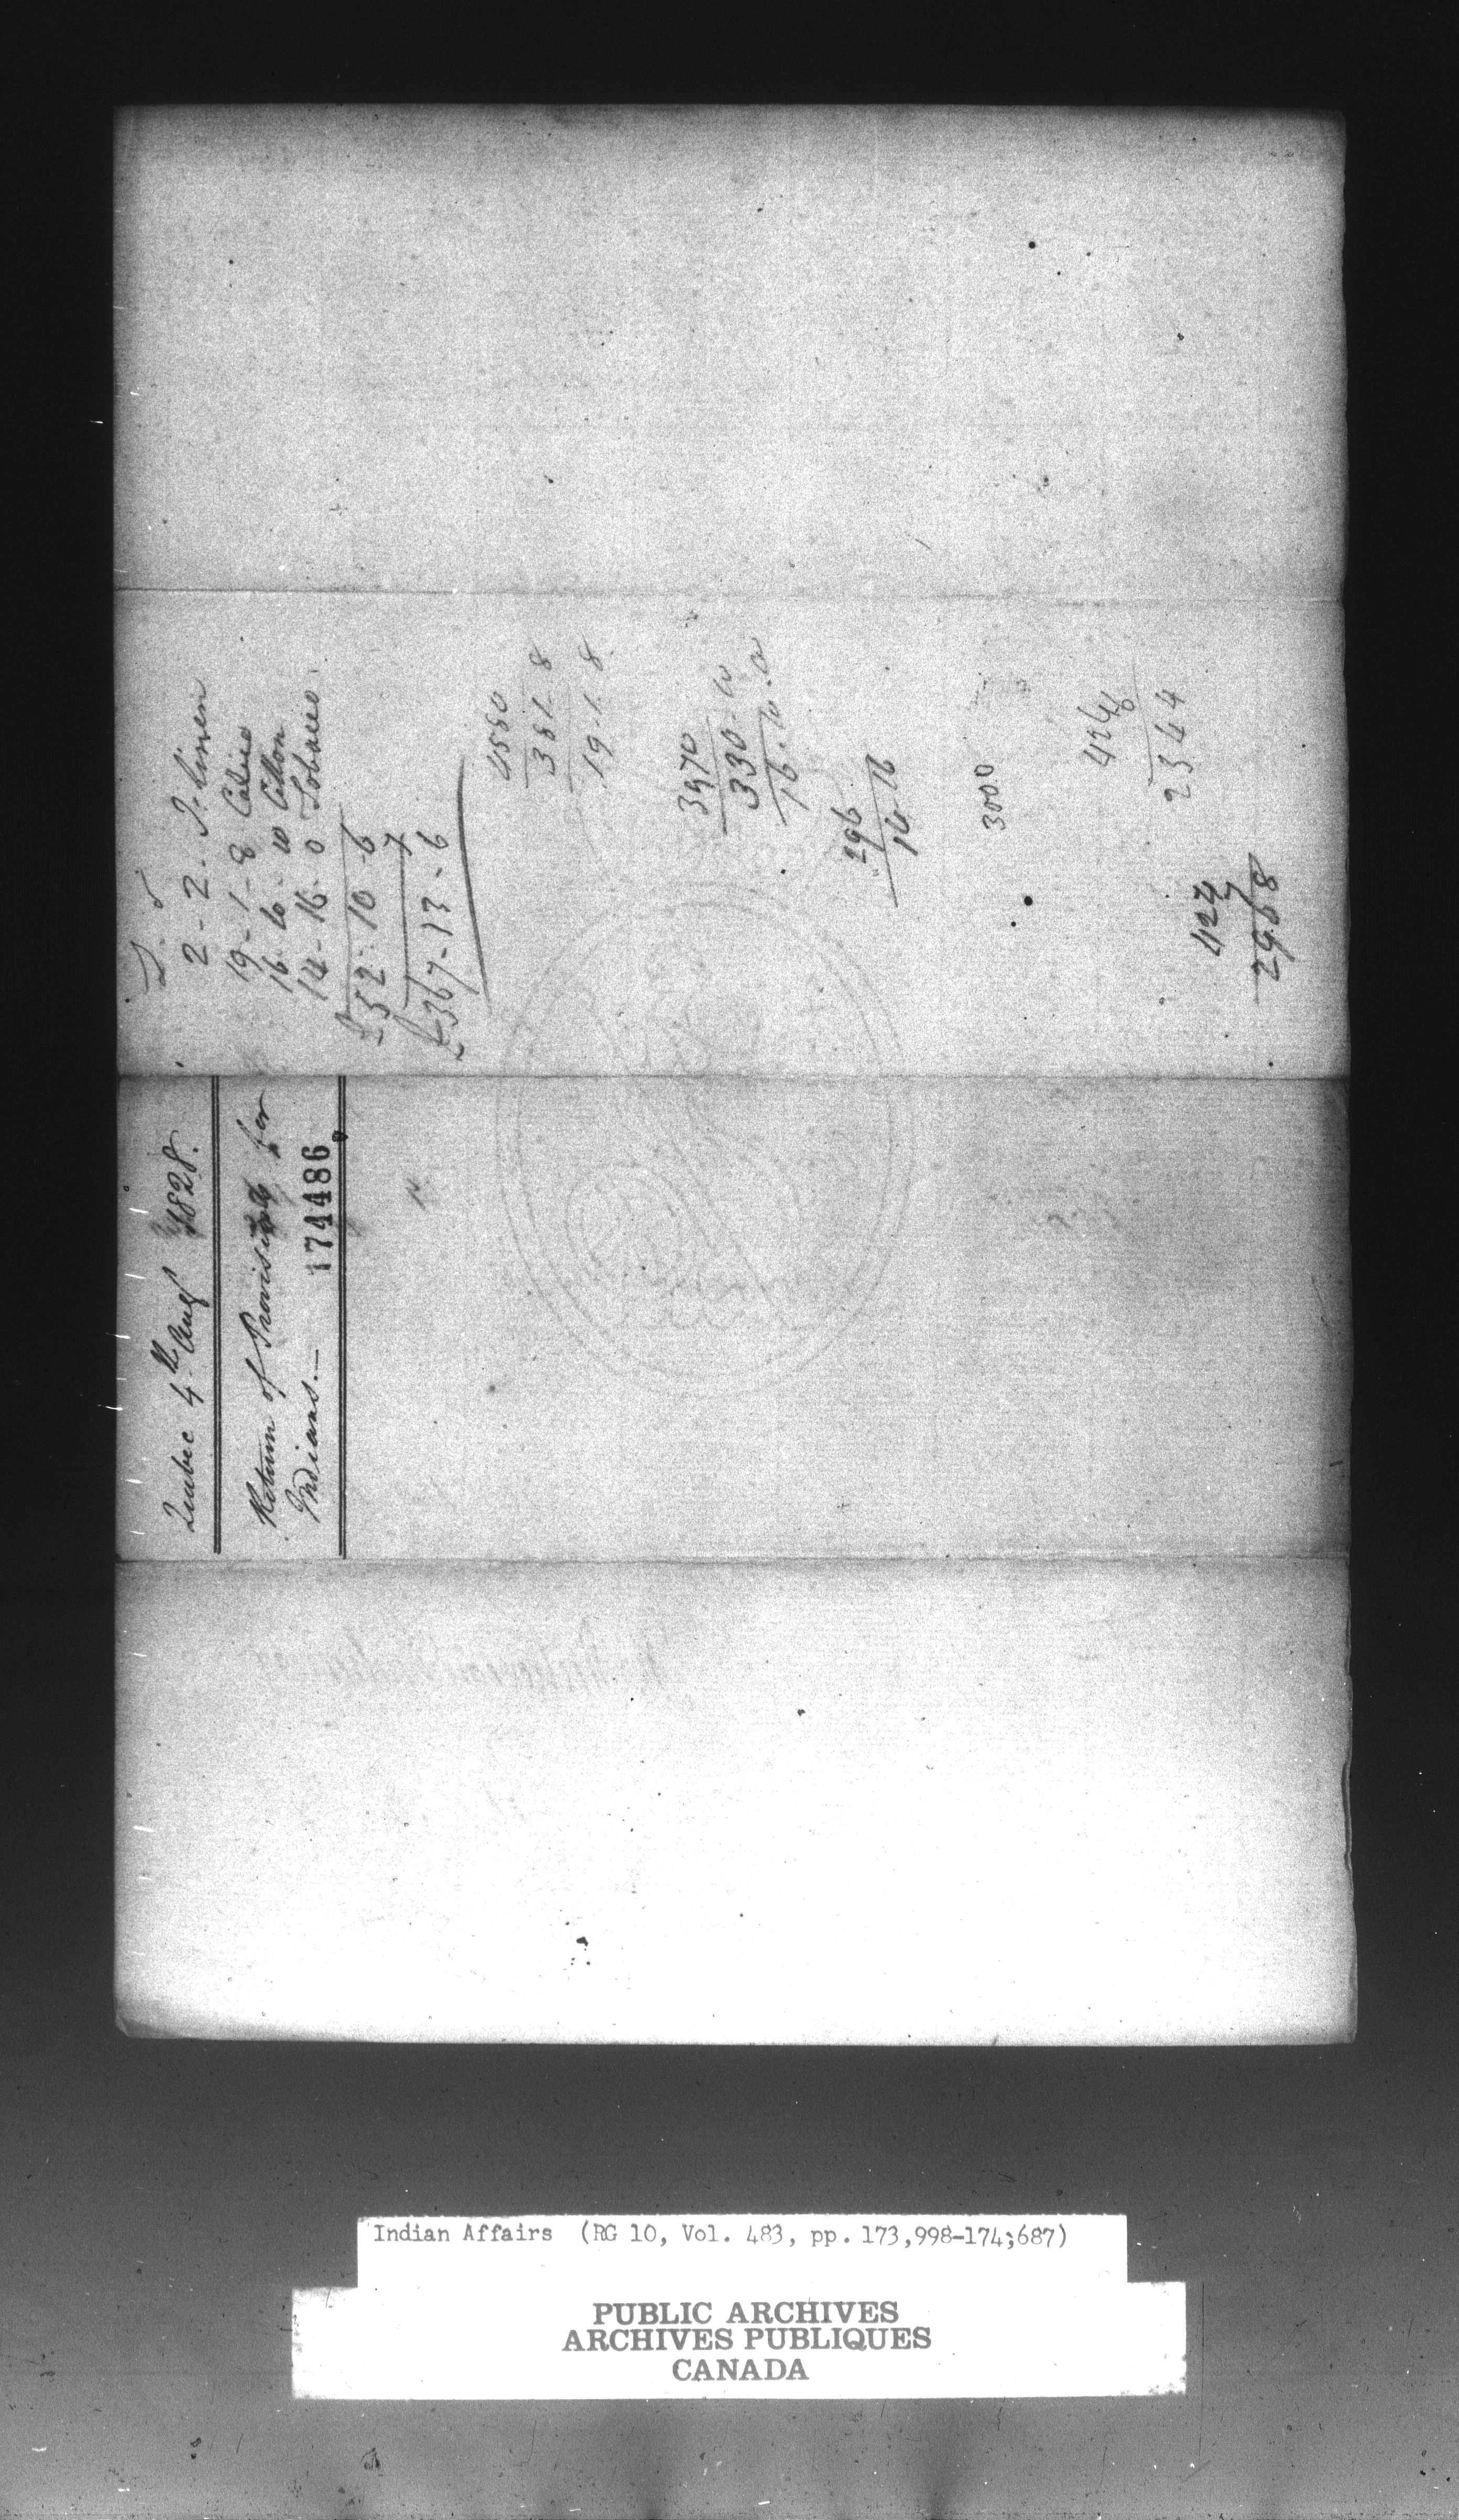 Quebec 4th Augt 1828.
Return of Provisions for
Indians.—
174486
S. d
2 - 2 . I. Linen
19 - 1 - 8 Calico
16 - 10 - 10 Cotton
14 - 16 - 0 Tobacco
£52 - 10 - 6
7
£367 - 13 - 6
4580
381 - 8
19 - 1 - 8
3970
330 - 10
16 - 10 - 10
296
14 16
3000
424
6
2544
424
7
2968
Indian Affairs (RG 10, Vol. 483, pp. 173,998-174;687)
PUBLIC ARCHIVES
ARCHIVES PUBLIQUES
CANADA